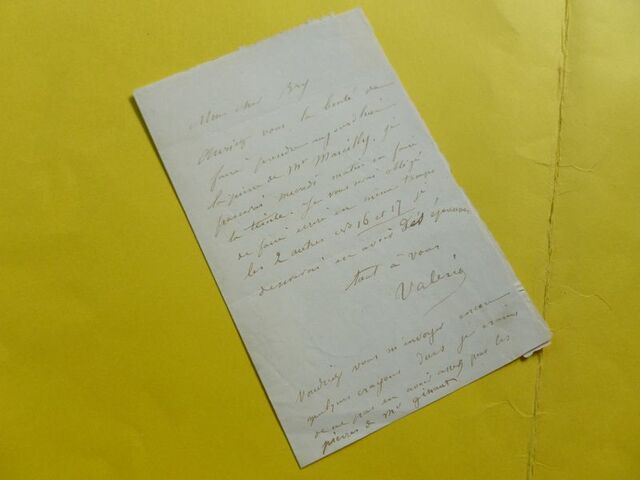 Mon cher Bry
Auriez vous la bonté de
faire prendre aujourd'hui
la pierre de Mr Marcilly. je
passerai mardi matin en faire
la teinte. Je vous serai obligé
de faire écrire en même temps
les 2 autres nos 16 et 17 je
désirerai en avoir des épreuves
tout à vous
Valerio
Voudriez vous m'envoyer encore
quelques crayons durs je crains
de ne pas en avoir assez pour les
pierres de Mr